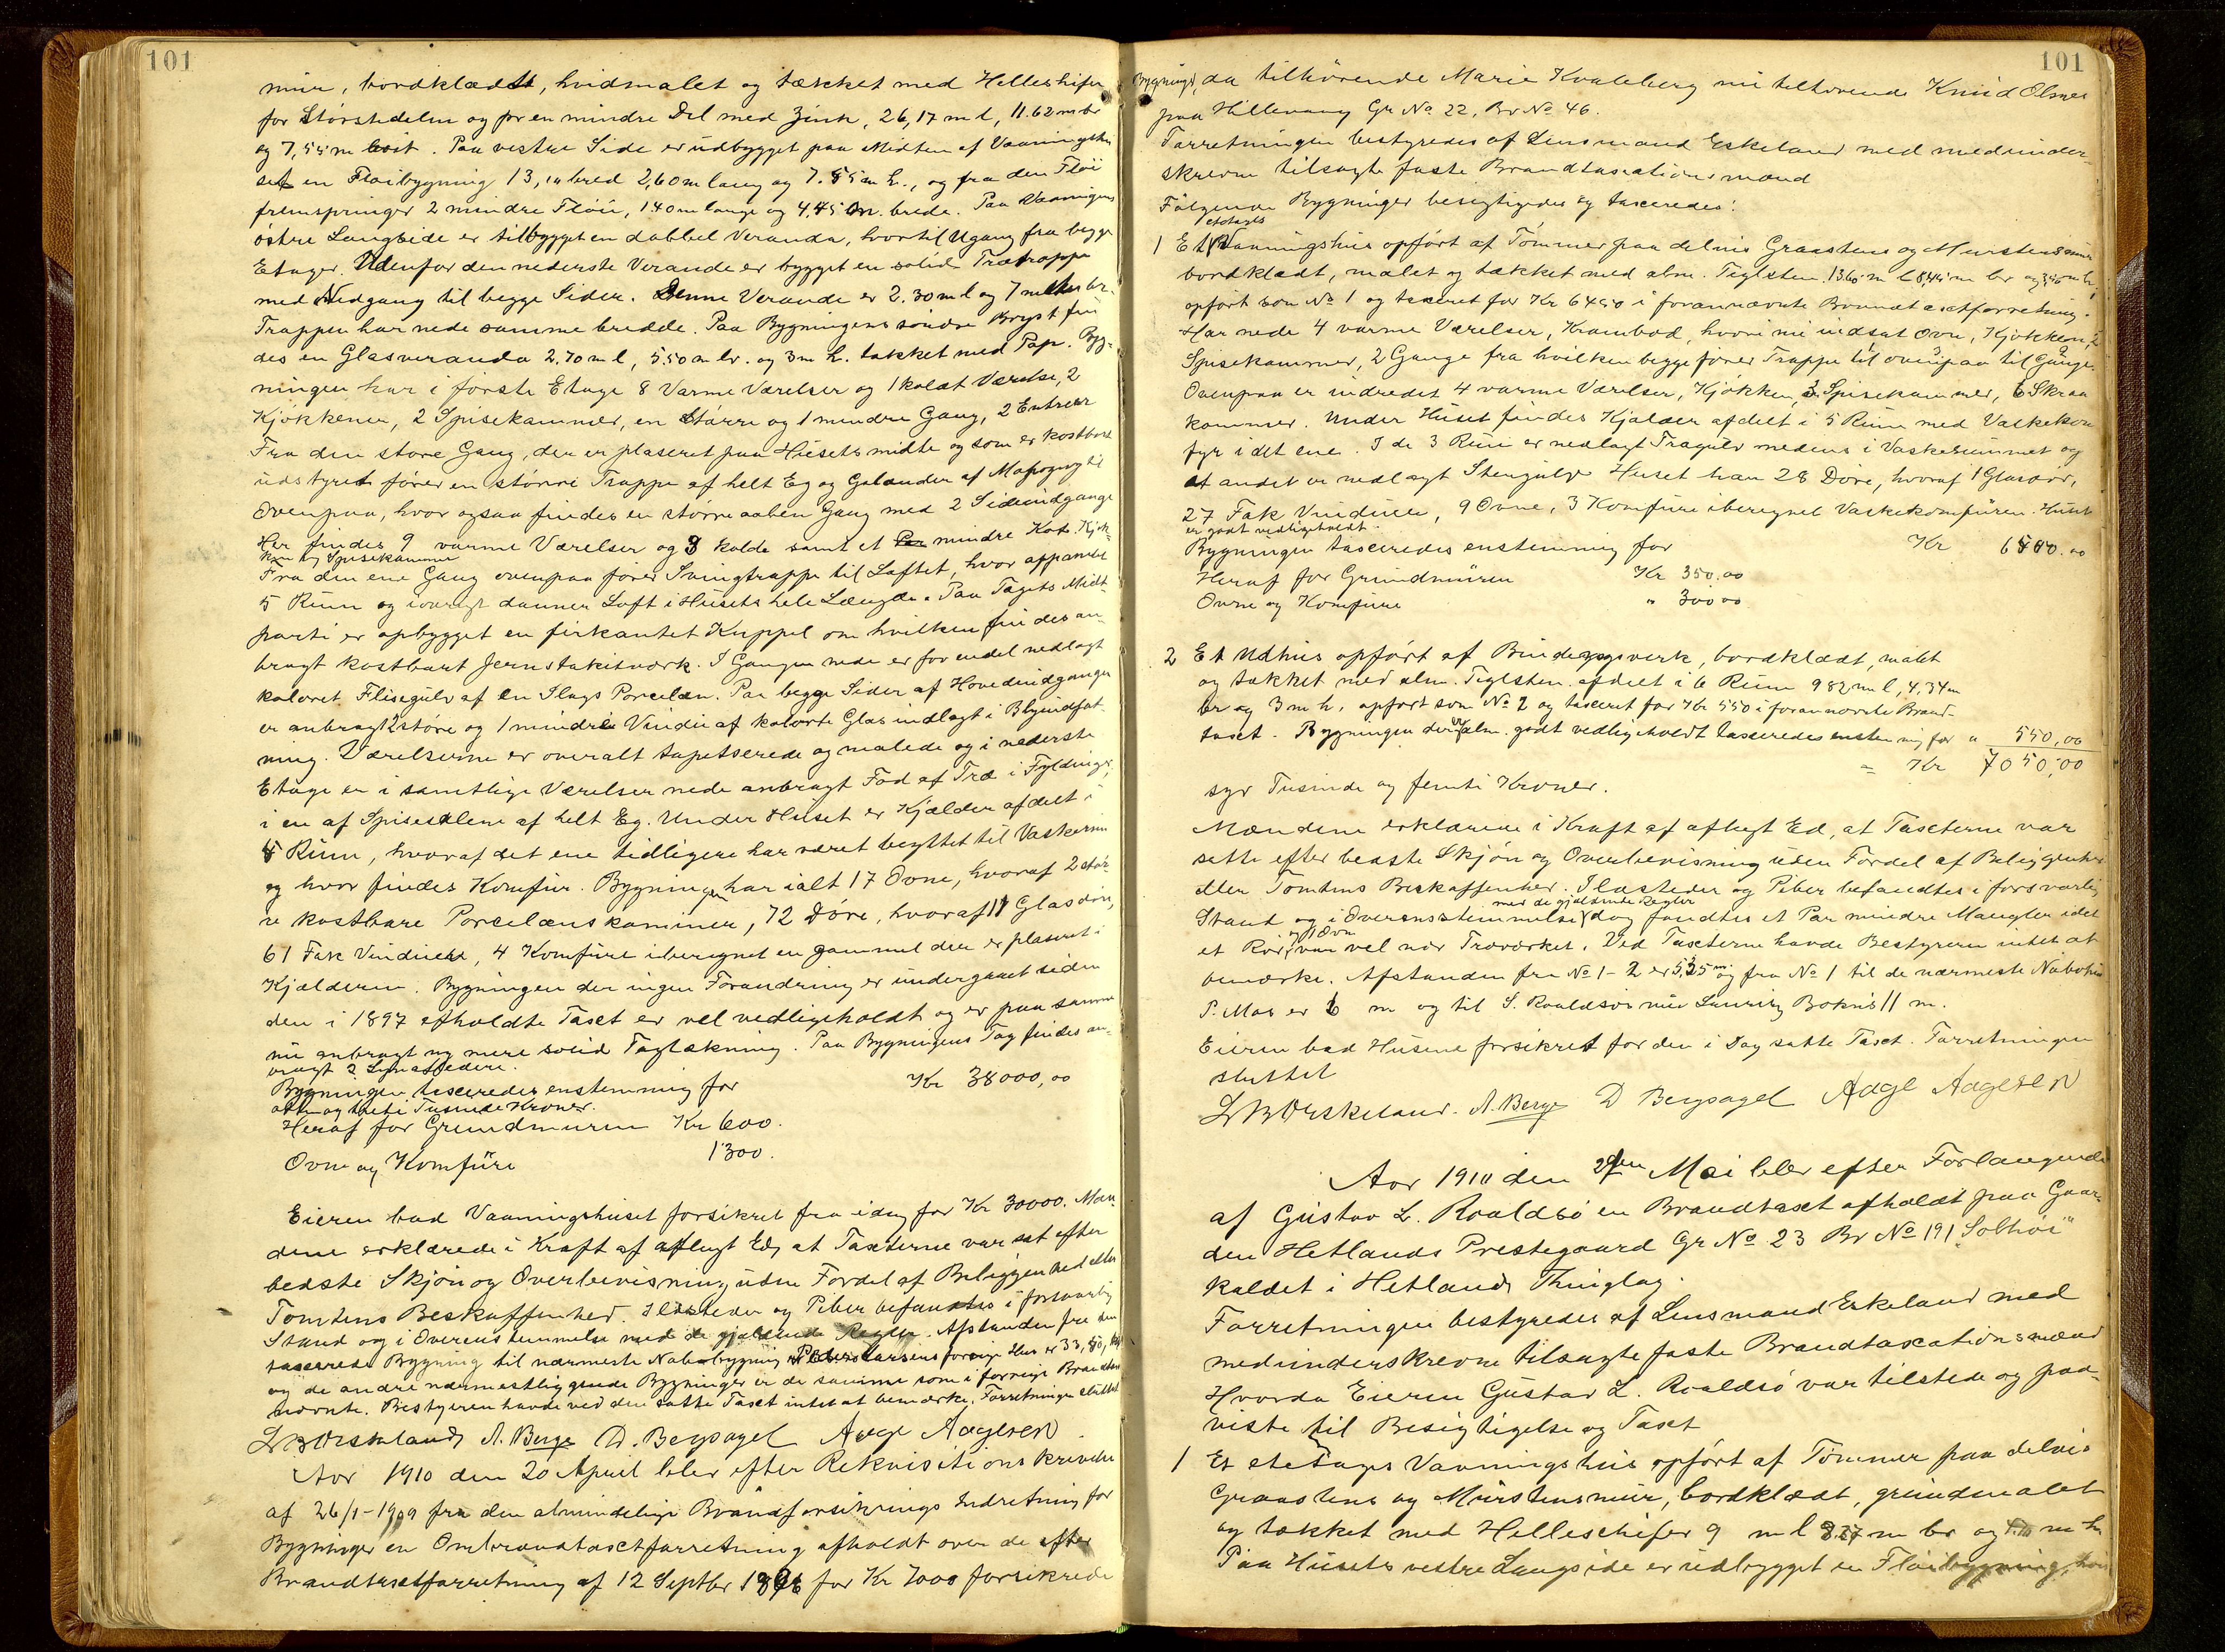 101
mur, bordklædt, hvidmalet og tækket med Helleskifer
for Størstedelen og for en mindre Del med Zink, 26,17 m l, 11.62 m br
og 7,55 m høit. Paa vestre Side er udbygget paa Midten af Vaaningshu
set en Fløibygning 13,10 bred 2,60 m lang og 7.55 m h., og fra den Fløi
fremspringer 2 mindre Fløie, 1.40 m lange og 4,45 m. brede. Paa Vaaningens
østre Langside er tilbygget en dobbel Veranda, hvortil Ugang fra begge
Etager. Udenfor den nederste Verande er bygget en solid Trætrappe
med Nedgang til begge Sider. Denne Verande er 2.30 m l og 7 meter br.
Trappen har nede samme bredde. Paa Bygningens søndre Bryst fin
des en Glasveranda 2.70 m l, 5.50 m br. og 3 m h. takket med Pap. Byg-
ningen har i første Etage 8 Varme Værelser og 1 koldt Værelse, 2
Kjøkkener, 2 Spisekammer, en Større og 1 mindre Gang, 2 Entreer
Fra den store Gang, der er plaseret paa Husets midte og som er kostbart
udstyret fører en større Trappe af helt Eg og Gelænder af Mahogny til
Ovenpaa, hvor ogsaa findes en større aaben Gang med 2 Sideindgange
Her findes 9 varme Værelser og 3 kolde samt et mindre Kot. Kjøk-
ken og Spisekammer
Fra den ene Gang ovenpaa fører Svingtrappe til Loftet, hvor oppanelet
5 Rum og iøvrigt danner Loft i Husets hele Længde. Paa Tagets Midt-
parti er opbygget en firkantet Kuppel om hvilken findes an-
bragt kostbart Jernstakitværk. I Gangen nede er for endel nedlagt
koløret Flisegulv af en Slags Porcelæn. Paa begge Sider af Hovedindgangen
er anbragt 2 støre og 1 mindre Vindu af kolørte Glas indlagt i Blyindfat-
ning. Værelserne er overalt tapetserede og malede og i nederste
Etage er i samtlige Værelser nede anbragt Fod af Træ i Fyldinge,
i en af Spisesalene af helt Eg. Under Huset er Kjælder afdelt i
5 Rum, hvoraf det ene tidligere har været benyttet til Vaskerum
og hvor findes Komfur. Bygningen har ialt 17 Ovne, hvoraf 2 stør-
re kostbare Porcelænskaminer, 72 Døre, hvoraf 11 Glasdøre,
61 Fak Vinduer, 4 Komfure iberegnet en gammel der er plaseret i
Kjælderen. Bygningen der ingen Forandring er undergaaet siden
den i 1897 afholdte Taxt er vel vedligeholdt og er paa samme
nu anbragt ny mere solid Tagtækning. Paa Bygningens Tag findes an-
bragt 2 Lynafledere.
Bygningen taxeredes enstemmig for Kr 38000,00
otte og treti Tusinde Kroner.
Heraf for Grundmuren Kr 600.
Ovne og Komfure 1300.
Eieren bad Vaaningshuset forsikret fra idag for Kr 30000. Mæn-
dene erklærede i Kraft af aflagt Ed, at Taxterne var sat efter
bedste Skjøn og Overbevisning uden Fordel af Beliggenhed eller
Tomtens Beskaffenhed. Ildsteder og Piber befandtes i forsvarlig
Stand og i Overensstemmelse med de gjældende Regler. Afstanden fra den
taxerede Bygning til nærmeste Nabobygning Peder Larsens forrige Hus er 33,80,
og de andre nærmestliggende Bygninger er de samme som i forrige Brandtaxt
nævnte. Bestyreren havde ved den satte Taxt intet at bemærke. Forretningen sluttet
L B Orskeland A. Berge D. Bergsagel Aage Aagesen
Aar 1910 den 20 April blev efter Rekvisitionskrivelse
af 26/1-1909 fra den almindelige Brandforsikrings Indretning for
Bygninger en Ombrandtaxtforretning afholdt over de efter
Brandtaxtforretning af 12 Septbr 1896 for Kr 7000 forsikrede
101
Bygninger, da tilhørende Marie Kvaleberg nu tilhørende Knud Olsen
paa Hillevaag Gr No 22, Br No 46.
Forretningen bestyredes af Lensmand Eskeland med medunder-
skrevne tilsagte faste Brandtaxationsmænd
Følgende Bygninger besigtigedes og taxeredes:
etetages
1 Et Vaaningshus opført af Tømmer paa delvis Graastens og Murstensmur
bordklædt, malet og tækket med alm. Teglsten 13.60 m l 8,45 m br og 3,50 m h,
opført som No 1 og taxeret for Kr 6450 i forannævnte Brandtaxtforretning.
Har nede 4 varme Værelser, Krambod, hvori nu indsat Ovn, Kjøkken, 2
Spisekammer, 2 Gange fra hvilken begge fører Trappe til ovenpaa til Gange
Ovenpaa er indredet 4 varme Værelser, Kjøkken, 2 Spisekammer, 6 Skraa
kammer. Under Huset findes Kjælder afdelt i 5 Rum med Vaskekom
fyr i det ene. I de 3 Rum er nedlagt Trægulv medens i Vaskerummet og
et andet er nedlagt Stengulv. Huset har 28 Døre, hvoraf 1 Glasdør,
27 Fak Vinduer, 9 Ovne, 3 Komfure iberegnet Vaskekomfuren. Huset
er godt vedligeholdt.
Bygningen taxeredes enstemmig for Kr 6500.00
Heraf for Grundmuren Kr 350.00
Ovne og Komfure " 300.00
2 Et Udhus opført af Bindingsverk, bordklædt, malet
og tækket med alm. Teglsten. afdelt i 6 Rum 9 82 m l, 4,34 m
br og 3 m h, opført som No 2 og taxeret for Kr 550 i forannævnte Brand-
taxt. Bygningen der er alm. godt vedligeholdt taxeredes enstemmig for " 550,00
= Kr 7050,00
syv Tusinde og femti Kroner.
Mændene erklærede i Kraft af aflagt Ed, at Taxterne var
satte efter bedste Skjøn og Overbevisning uden Fordel af Beliggenhed
eller Tomtens Beskaffenhed. Ildsteder og Piber befandtes i forsvarlig
med de gjældende Regler
Stand og i Overensstemmelse dog fandtes et Par mindre Mangler idet
og 1 Ovn
et Rør var vel nær Træværket. Ved Taxterne havde Bestyreren intet at
bemærke. Afstanden fra No 1-2 er 5,25 m og fra No 1 til de nærmeste Nabohus
P. Mos er 6 m og til S. Roaldsøs nu Lauritz Bokns 11 m.
Eieren bad Husene forsikret for den i Dag satte Taxt. Forretningen
sluttet
L B Orskeland. A. Berge D Bergsagel Aage Aagesen
Aar 1910 den Mai blev efter Forlangende
af Gustav L. Roaldsø en Brandtaxt afholdt paa Gaar-
den Hetlands Prestegaard Gr No 23 Br No 191 "Solhøi"
kaldet i Hetlands Thinglag.
Forretningen bestyredes af Lensmand Eskeland med
medunderskrevne tilsagte faste Brandtaxationsmænd
Hvorda Eieren Gustav L. Roaldsø var tilstede og paa-
viste til Besigtigelse og Taxt
1 Et etetages Vaaningshus opført af Tømmer paa delvis
Graastens og Murstensmur, bordklædt, grundmalet
og tækket med Helleschifer 9 m l 8.27 m br og m h
Paa Husets vestre Langside er udbygget en Fløibygning,